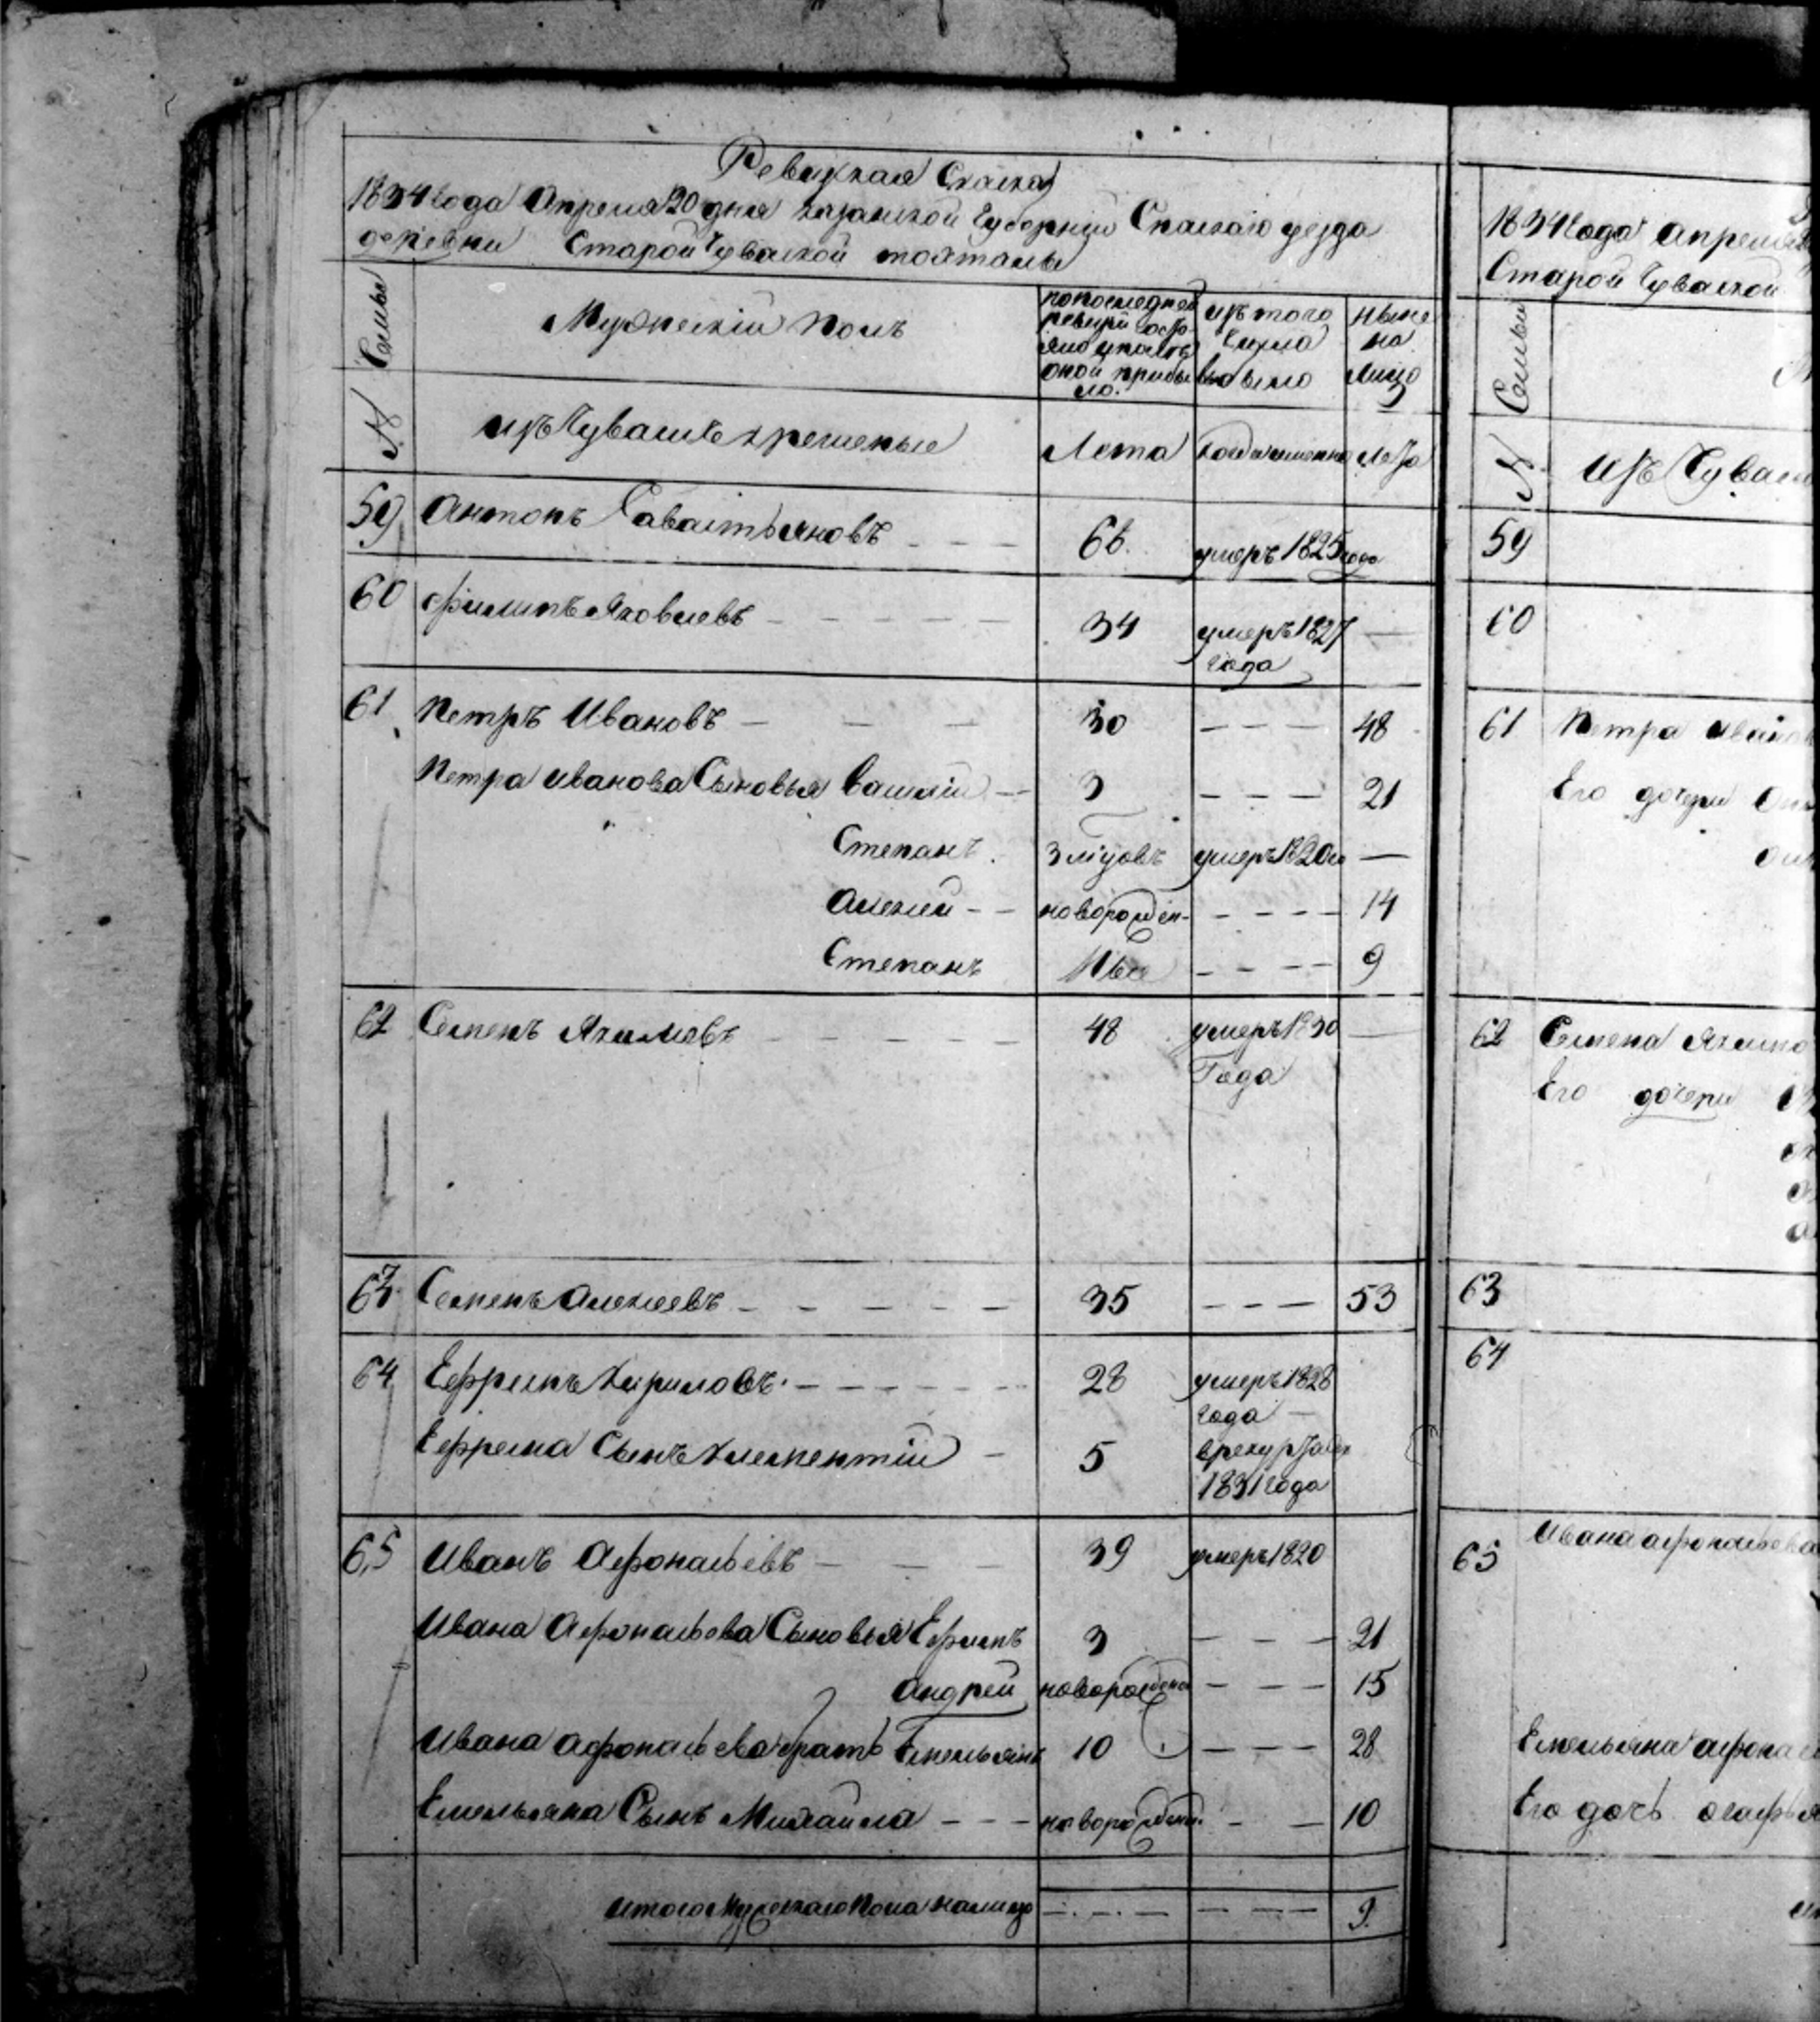 Ревизская Сказка
1834 года Апреля 20 дня казанской Губернии Спаского уезда
деревни Старой Чувашской
№ Семьи
Мужеский полъ
по последней ревизии состояло и после оной прибыло.
изъ того числа выбыло
ныне на лицо
изъ Чувашъ крещеные
Лета
когда именно
лета
59 Антонъ Савастьяновъ - - - 66. умеръ 1825 года
60 Филипъ Яковлевъ - - - - - 34 умеръ 1827 —
года
61 Петръ Ивановъ — — — 30 - - - 48
Петра иванова Сыновья Василій - - 3 - - - 21
Степанъ. умеръ 1820 —
Алексей - - новорожден- - - - - 14
Степанъ - - - - 9
62 Семенъ Якимовъ - - - - - 48 умеръ 1830 —
Года
63 Семенъ Алексеевъ - - - - - 35 - - - 53
64 Ефримъ Кириловъ - - - - - - 28 умеръ 1828
года —
Ефрема Сынъ Клементій - 5 в рекруты
1831 года
65 Иванъ Афонасьевъ - - - 39 умеръ 1820
Ивана Афонасьева Сыновья Ефимъ 3 - - - 21
Андрей новорожден - - - 15
Ивана афонасьева братъ Емельянъ 10 - - - 28
Емельяна Сынъ Михайла - - - новорожден. - - 10
итого Мужескаго Пола налицо - - - - - - 9.
1834 года апреля
Старой Чувашской
№ Семьи
изъ Чуваш
59
60
61 Петра Иванов
Его дочери
62 Семена Якимо
Его дочери
63
64
65 Ивана афонасьева
Емельяна афона
Его дочь агафья